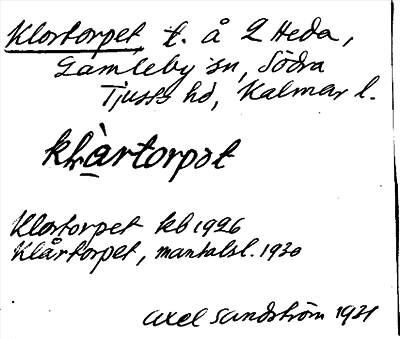 Klortorpet, t. å 2 Heda,
Gamleby sn, Södra
Tjusts hd, Kalmar l.
Klortorpet kb 1926
Klårtorpet, mantalsl. 1930
Axel Sandström 1931